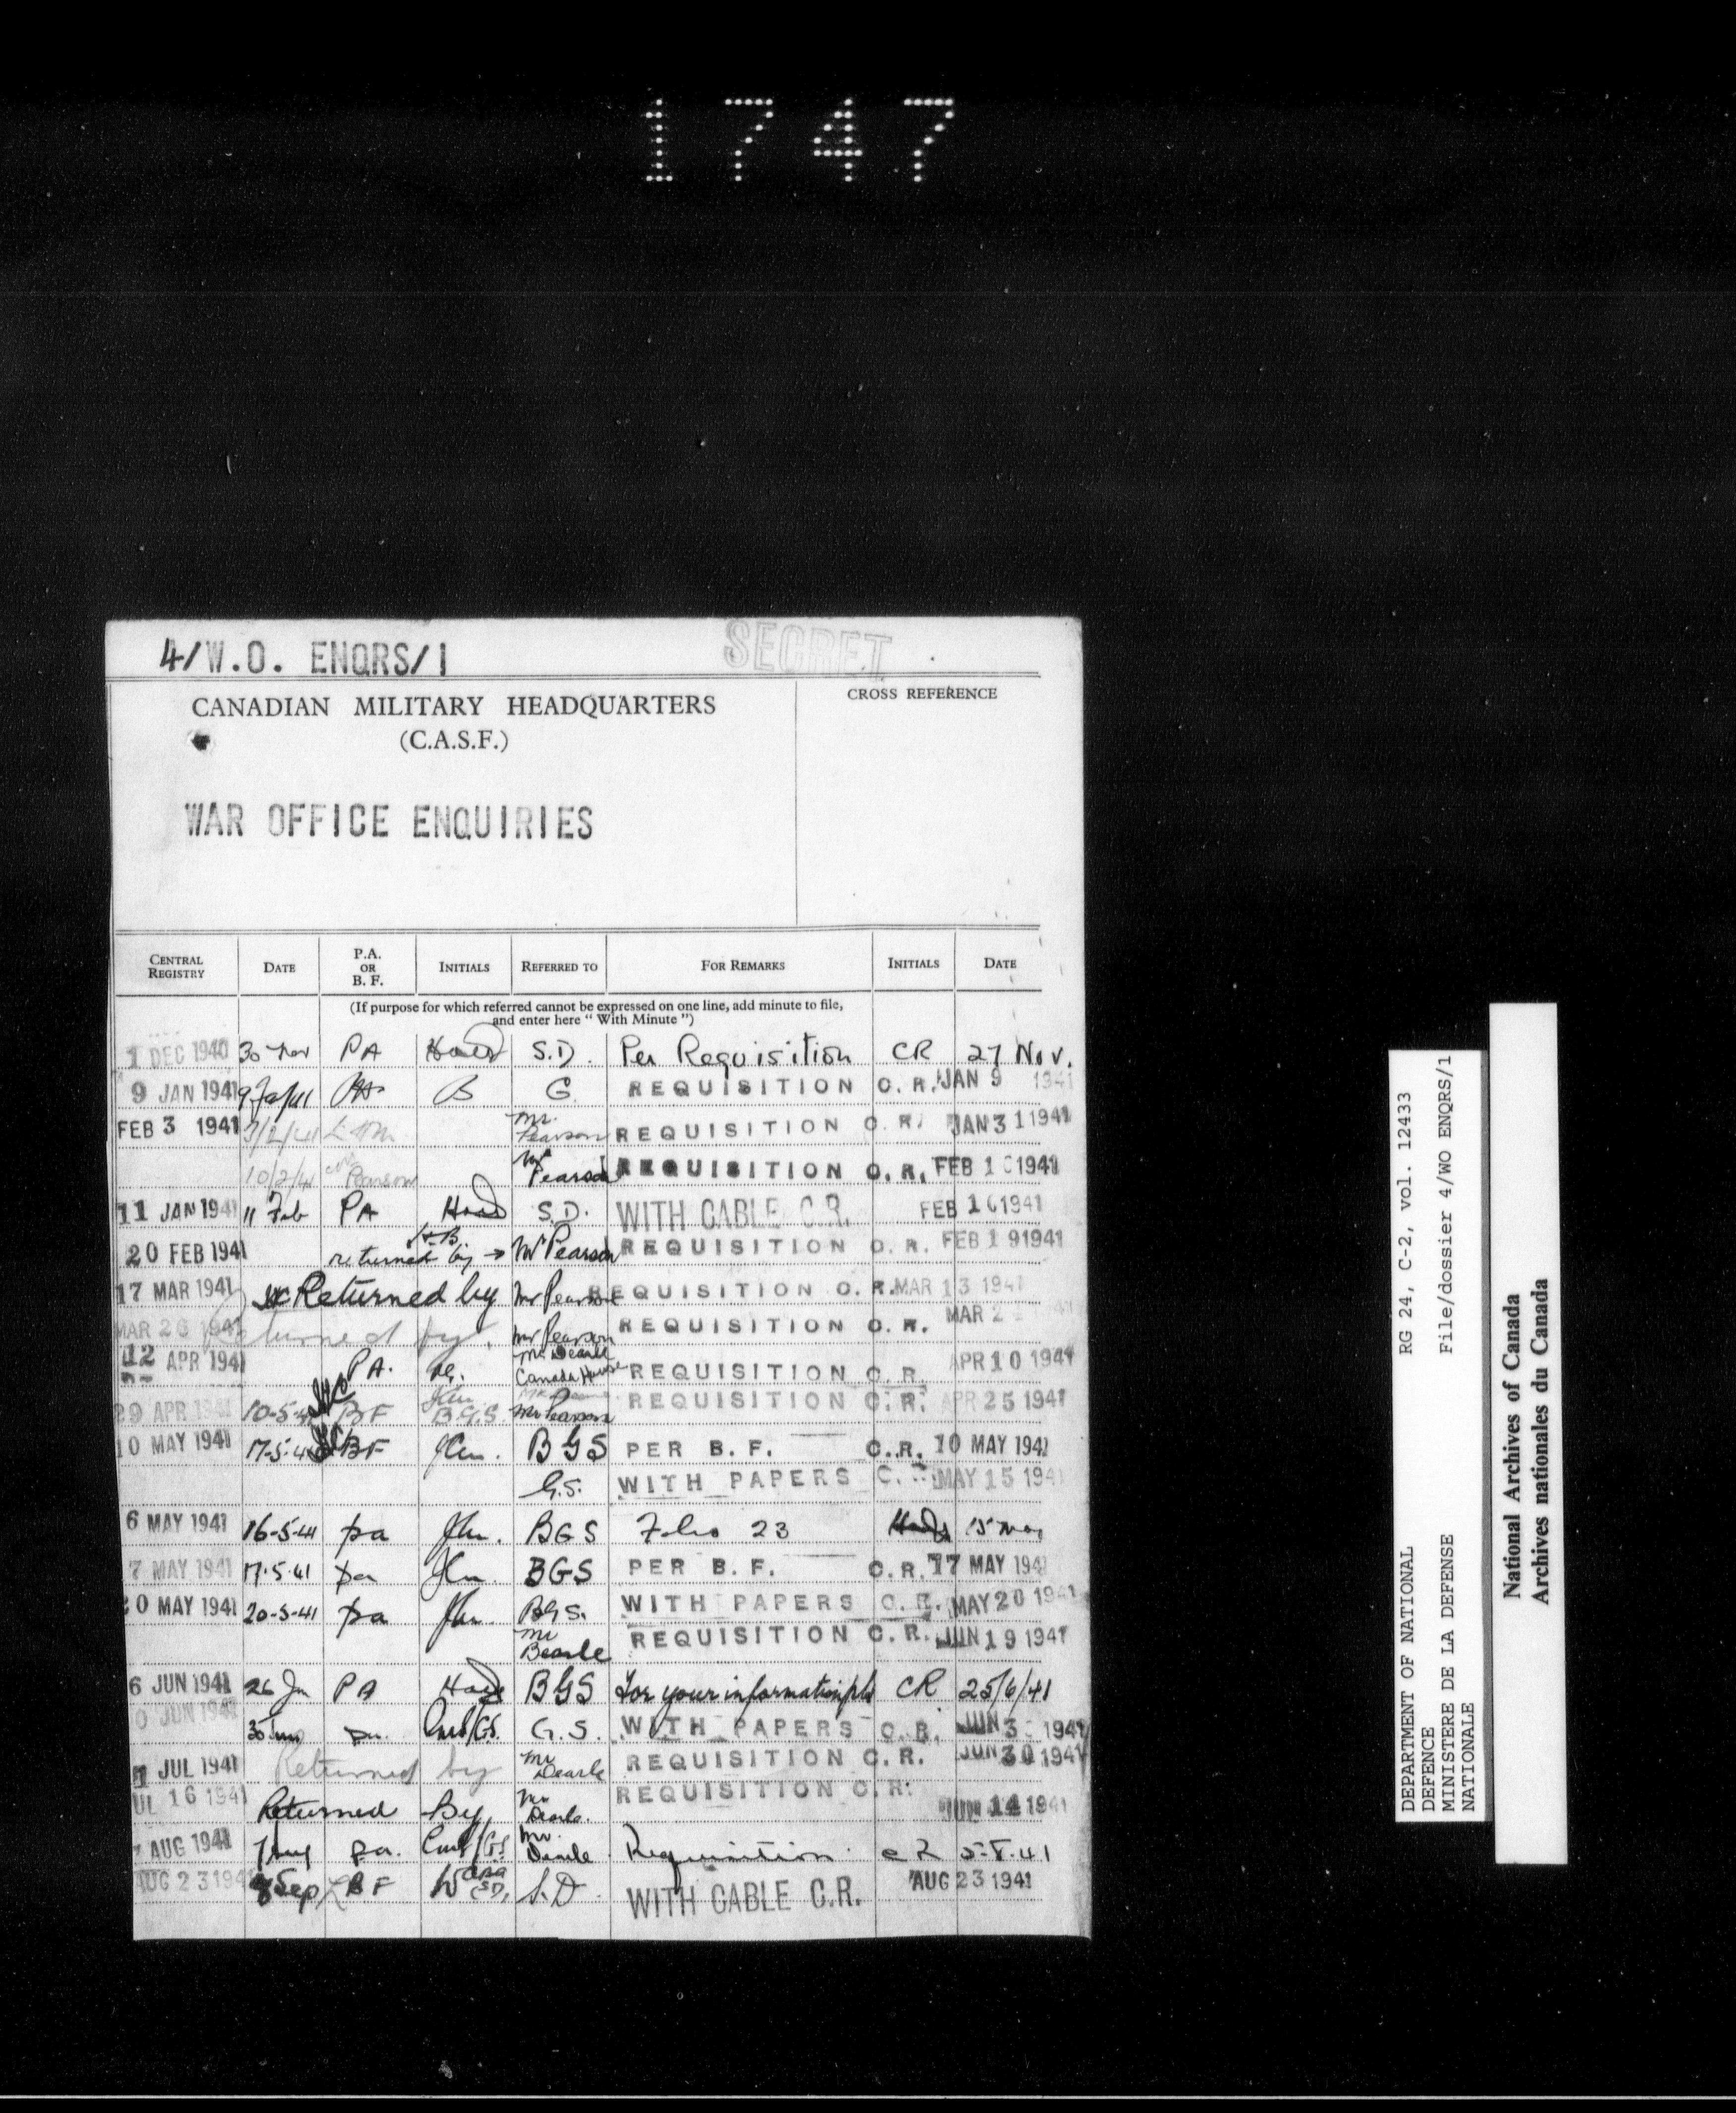 1747
4/W.O. ENQRS/1 SECRET
CANADIAN MILITARY HEADQUARTERS
(C.A.S.F.)
CROSS REFERENCE
WAR OFFICE ENQUIRIES
CENTRAL REGISTRY DATE P.A. OR B. F. INITIALS REFERRED TO FOR REMARKS INITIALS DATE
(If purpose for which referred cannot be expressed on one line, add minute to file,
and enter here " With Minute ")
1 DEC 1940 30 Nov PA S.D. Per Requisition CR 27 Nov.
9 JAN 1941 B G REQUISITION C.R. JAN 9 1941
FEB 3 1941 3/2/41 Mr. Pearson REQUISITION C.R. JAN 31 1941
10/2/41 Pearson Mr Pearson REQUISITION C.R. FEB 10 1941
11 JAN 1941 11 Feb PA S.D. WITH CABLE C.R. FEB 10 1941
20 FEB 1941 returned by → Mr Pearson REQUISITION C.R. FEB 19 1941
17 MAR 1941 Returned by Mr Pearson REQUISITION C.R. MAR 13 1941
MAR 26 1941 by Mr Pearson REQUISITION C.R. MAR 2
12 APR 1941 P.A. Mr Dearle Canada House REQUISITION C.R. APR 10 1941
29 APR 1941 10-5-41 BF B.G.S. Mr Pearson REQUISITION C.R. APR 25 1941
10 MAY 1941 17-5-41 BF BGS PER B.F. C.R. 10 MAY 1941
G.S. WITH PAPERS C.R. MAY 15 1941
6 MAY 1941 16-5-41 pa BGS Folio 23 15 May
7 MAY 1941 17.5.41 pa BGS PER B.F. C.R. 17 MAY 1941
20 MAY 1941 20-5-41 pa BGS. WITH PAPERS C.R. MAY 20 1941
Mr Dearle REQUISITION C.R. JUN 19 1941
6 JUN 1941 26 Jn PA BGS For your information pls CR 25/6/41
0 JUN 1941 G.S. WITH PAPERS C.R. JUN 3 1941
JUL 1941 Returned by Mr Dearle REQUISITION C.R. JUN 30 1941
UL 16 1941 Returned By Mr Dearle. REQUISITION C.R. 14 1941
7 AUG 1941 7 Aug pa. Mr. Dearle Requisition CR 5-8-41
AUG 23 1941 8 Sep BF S.D. WITH CABLE C.R. AUG 23 1941
DEPARTMENT OF NATIONAL RG 24, C-2, vol. 12433
DEFENCE
MINISTERE DE LA DEFENSE File/dossier 4/WO ENQRS/1
NATIONALE
National Archives of Canada
Archives nationales du Canada